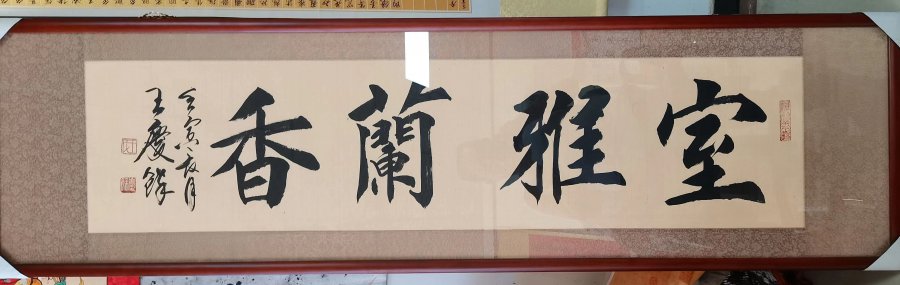 室雅蘭香
壬寅年月
王慶鐸